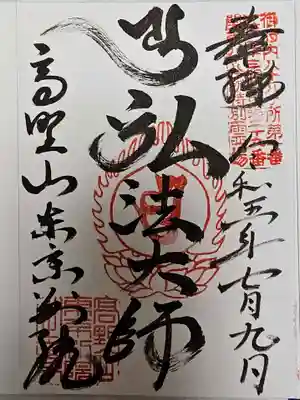 奉拝 令和五年七月九日
弘法大師
高野山東京別院
特別霊場